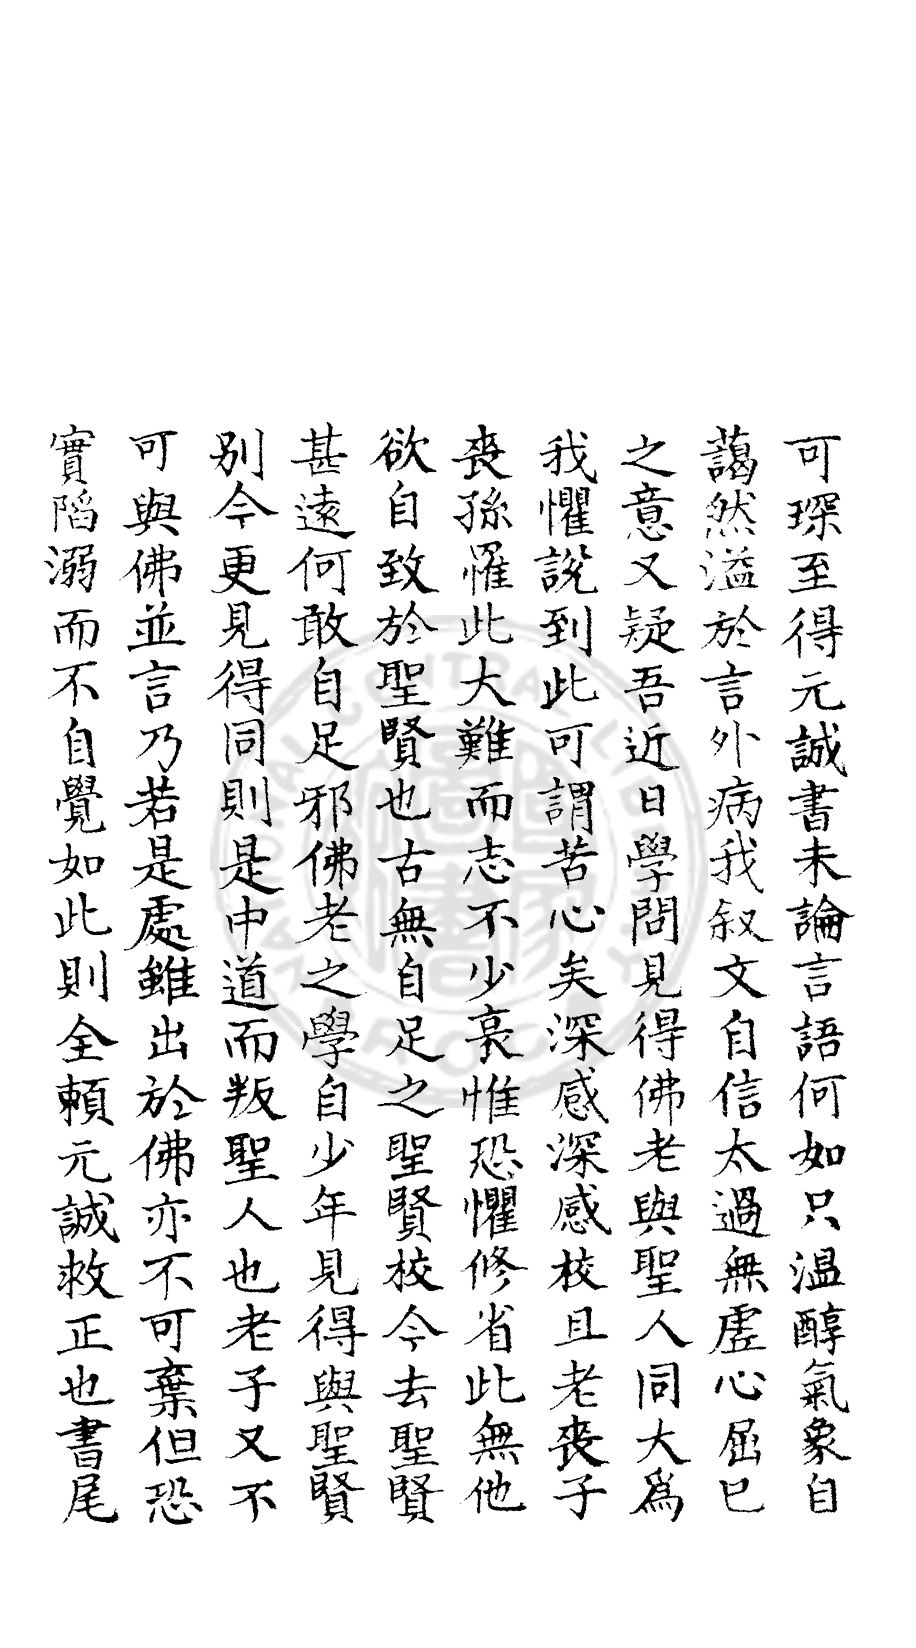 可琛至得元誠書未論言語何如只温醇氣象自
藹然溢於言外病我叙文自信太過無虛心屈已
之意又疑吾近日學問見得佛老與聖人同大爲
我懼說到此可謂苦心矣深感深感校且老喪子
喪孫罹此大難而志不少衰惟恐懼修省此無他
欲自致於聖賢也古無自足之聖賢校今去聖賢
甚遠何敢自足邪佛老之學自少年見得與聖賢
别今更見得同則是中道而叛聖人也老子又不
可與佛並言乃若是處雖出於佛亦不可棄但恐
實陷溺而不自覺如此則全頼元誠救正也書尾